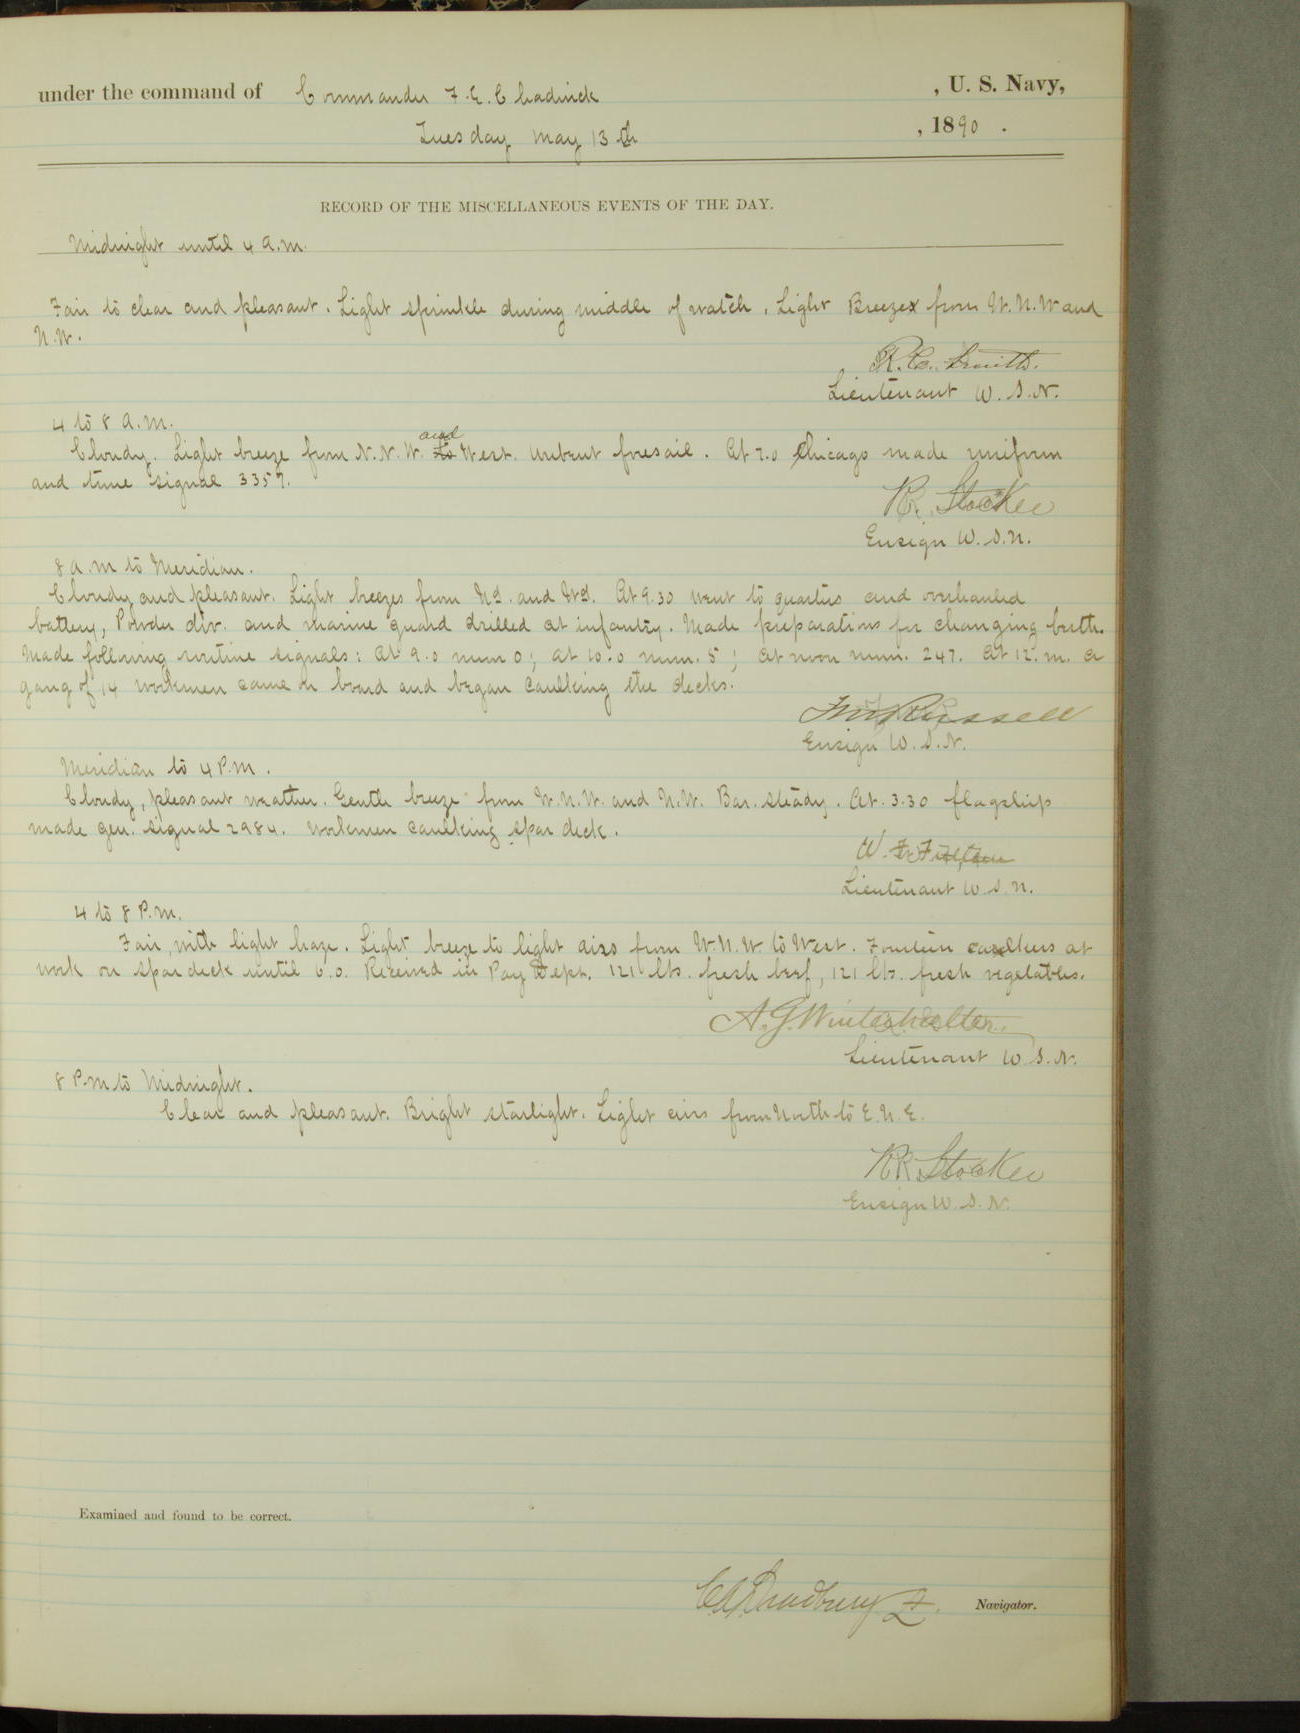 under the command of Commander F. E. Chadwick , U. S. Navy,
Tuesday May 13th , 1890 .
RECORD OF THE MISCELLANEOUS EVENTS OF THE DAY.
Midnight until 4 a.m.
Fair to clear and pleasant. Light sprinkle during middle of watch. Light Breezes from W.N.W and
N.W.
R. C. Smith.
Lieutenant U.S.N.
4 to 8 a.m.
Cloudy. Light breeze from N.N.W. and West. Unbent foresail. At 7.0 Chicago made uniform
and time signal 3357.
R. Stocker
Ensign U.S.N.
8 a.m to Meridian.
Cloudy and pleasant. Light breezes from Nd. and Wd. At 9.30 went to quarters and overhauled
battery, Powder div. and marine guard drilled at infantry. Made preparations for changing berth.
Made following routine signals: at 9.0 num 0; at 10.0 num. 5; at noon num. 247. At 12.m. a
gang of 14 workmen came on board and began caulking the decks.
Russell
Ensign U.S.N.
Meridian to 4 P.M.
Cloudy, pleasant weather. Gentle breeze from W.N.W. and N.W. Bar. steady. At 3.30 flagship
made gen. signal 2984. Workmen caulking spar deck.
W.
Lieutenant U.S.N.
4 to 8 P.M.
Fair, with light haze. Light breeze to light airs from W.N.W. to West. Fourteen caulkers at
work on spar deck until 6.0. Received in Pay Dept. 121 lbs. fresh beef, 121 lbs. fresh vegetables.
A. G. Winterhalter.
Lieutenant U.S.N.
8 P.M to Midnight.
Clear and pleasant. Bright starlight. Light airs from North to E.N.E.
R. Stocker
Ensign U.S.N.
Examined and found to be correct.
Navigator.